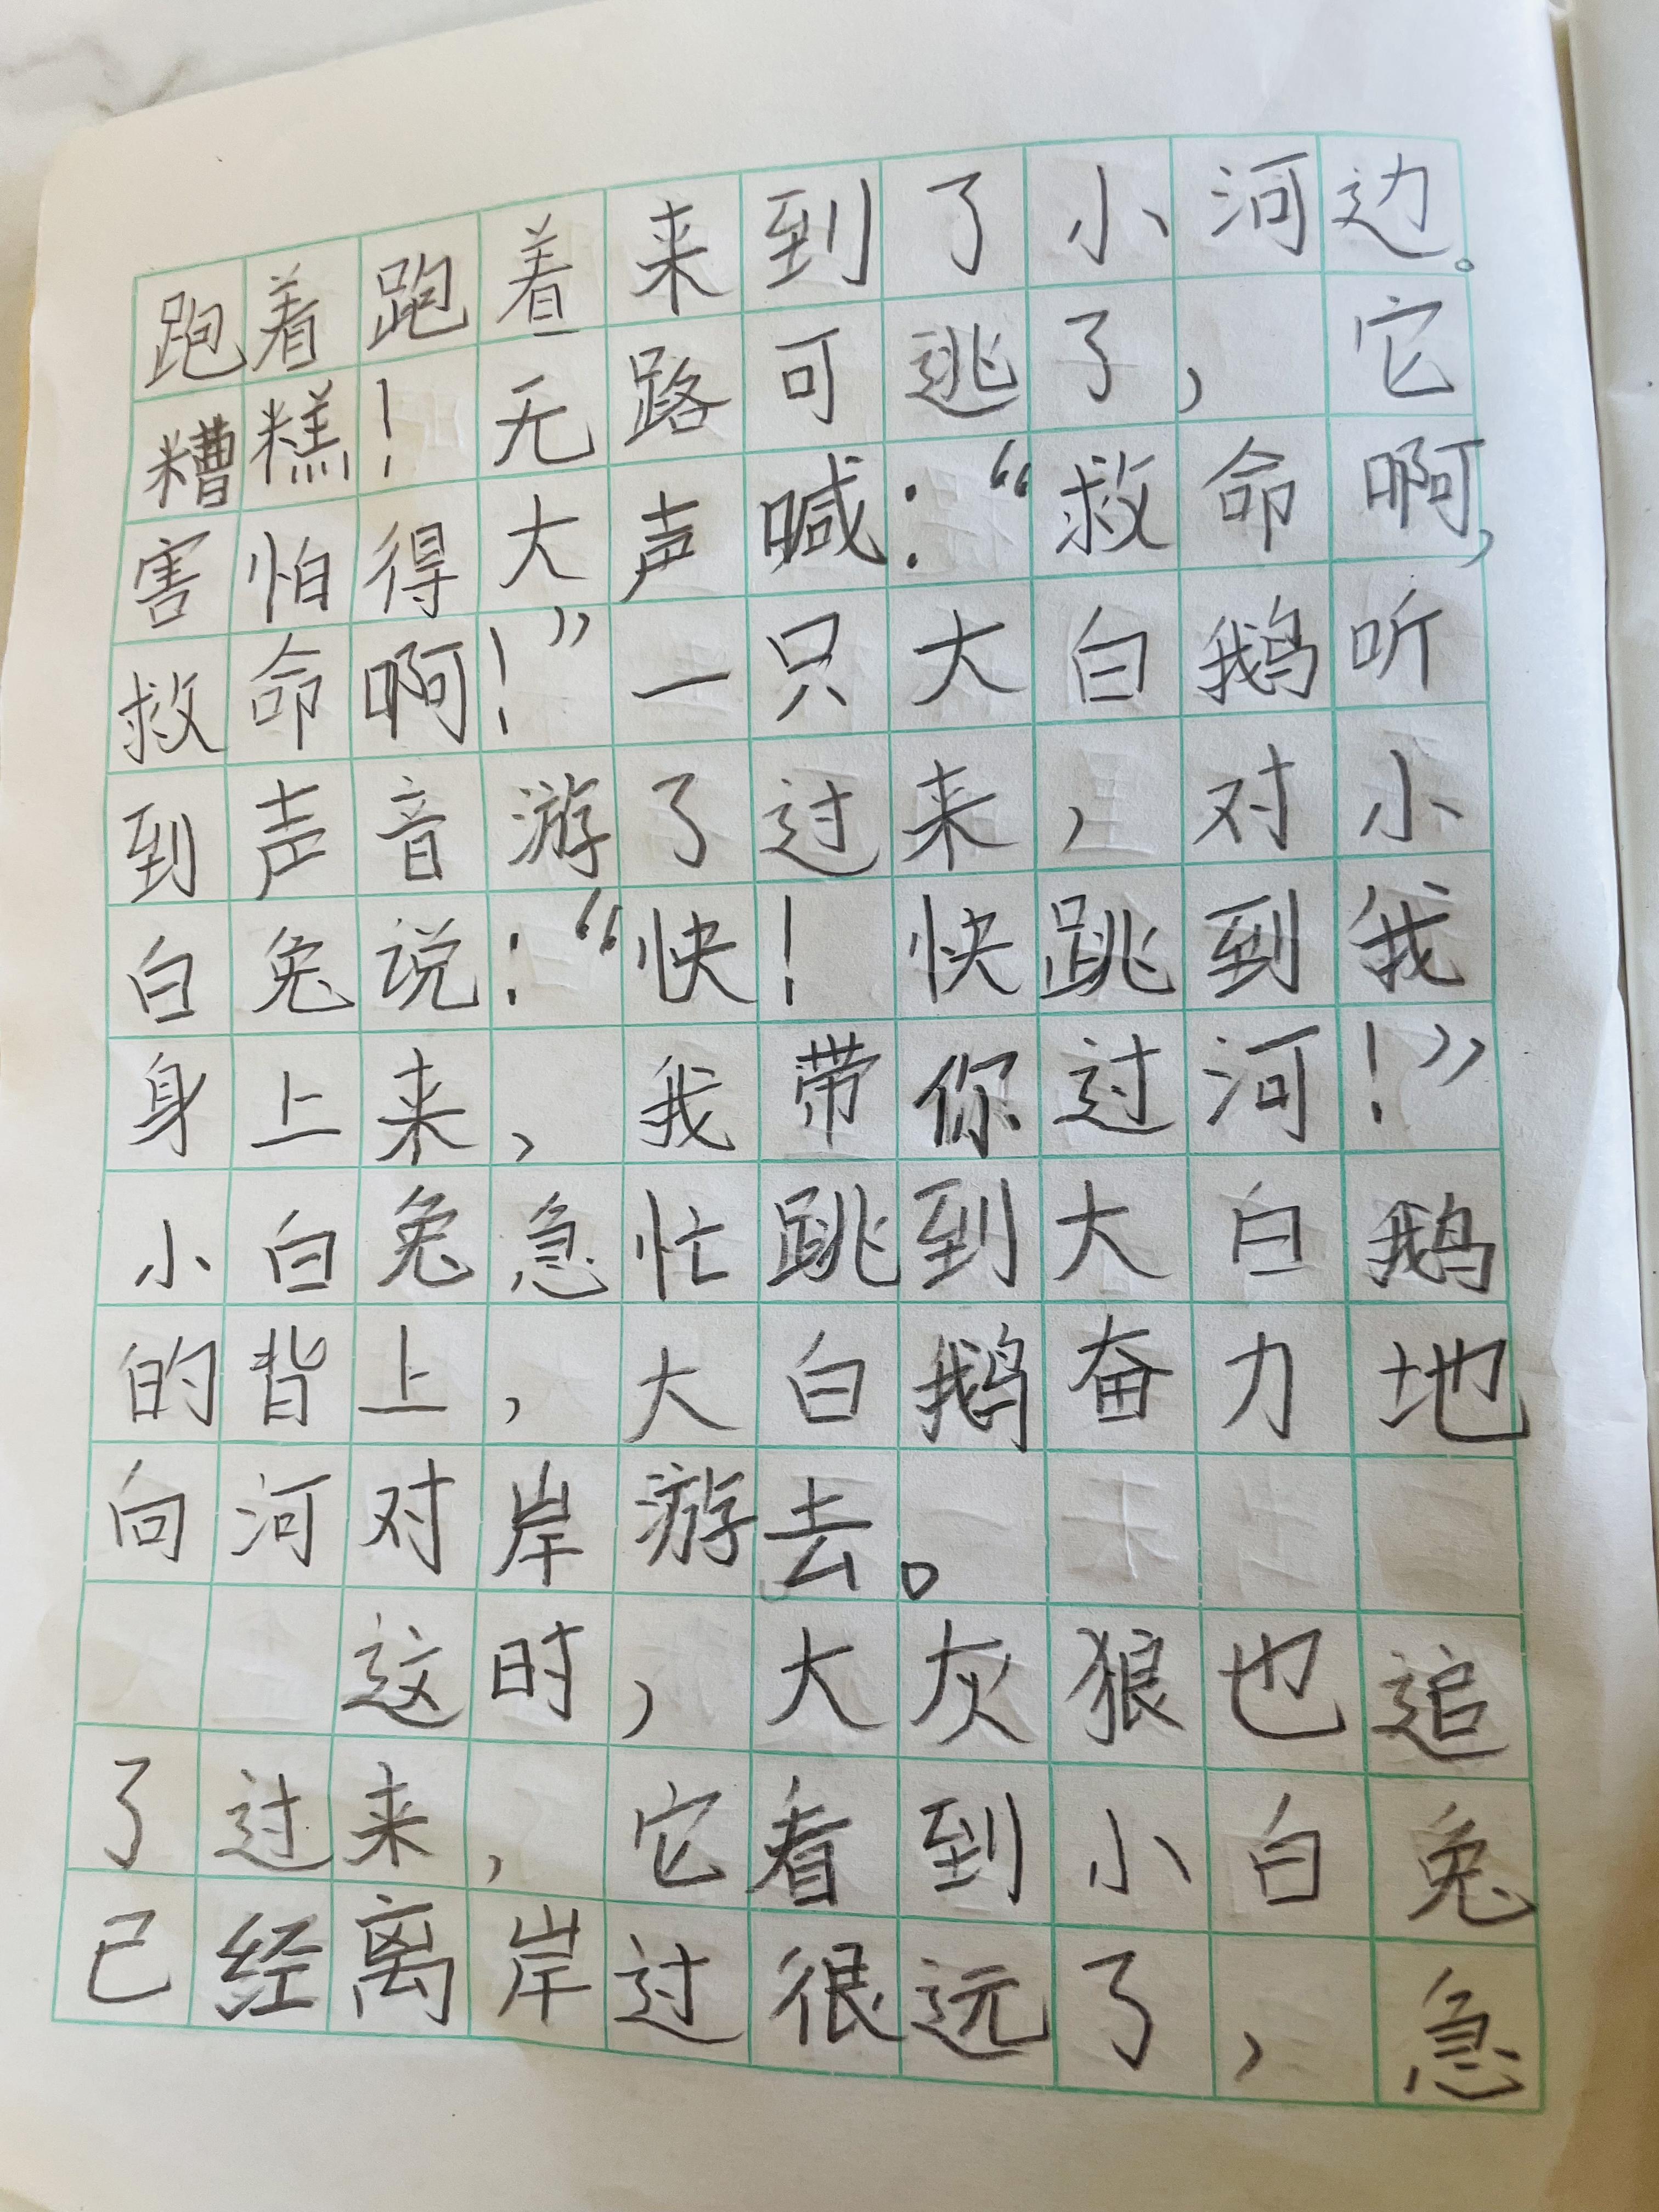 跑着跑着来到了小河边。
糟糕！无路可逃了，它
害怕得大声喊：“救命啊，
救命啊！”一只大白鹅听
到声音游了过来，对小
白兔说：“快！快跳到我
身上来，我带你过河！”
小白兔急忙跳到大白鹅
的背上，大白鹅奋力地
向河对岸游去。
这时，大灰狼也追
了过来，它看到小白兔
已经离岸过很远了，急